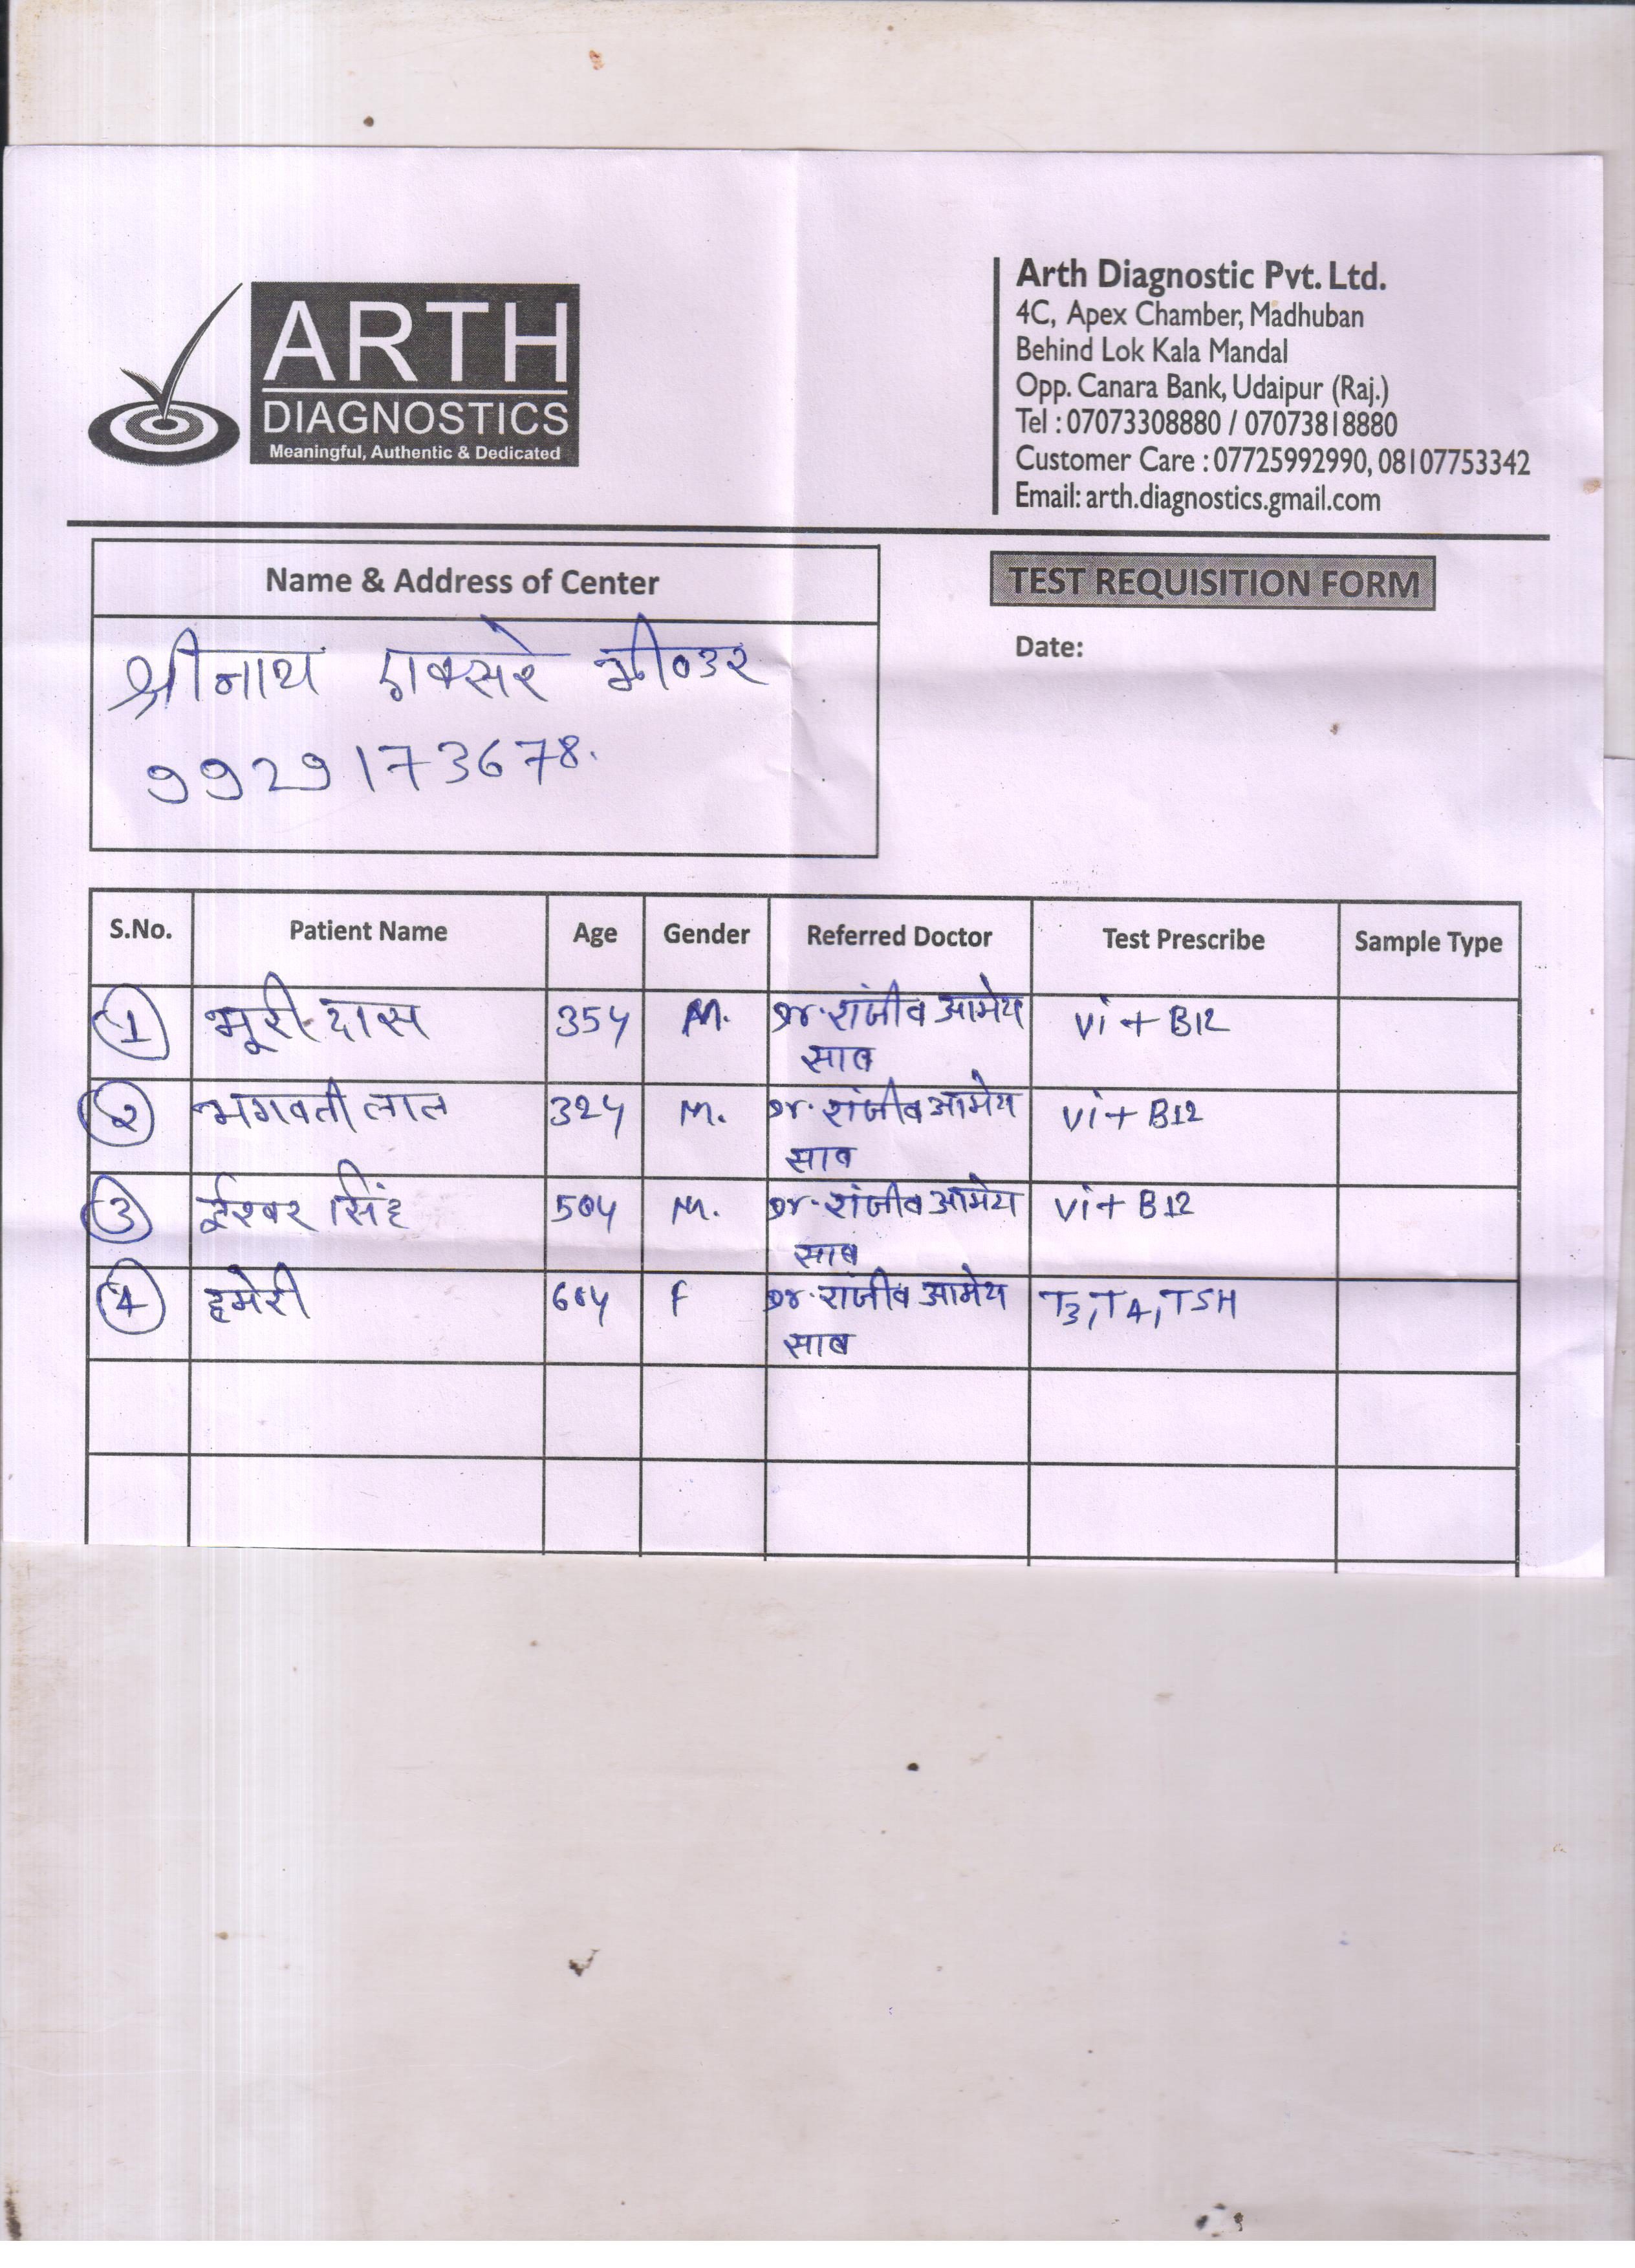 ARTH
DIAGNOSTICS
Meaningful, Authentic & Dedicated
Arth Diagnostic Pvt. Ltd.
4C, Apex Chamber, Madhuban
Behind Lok Kala Mandal
Opp. Canara Bank, Udaipur (Raj.)
Tel : 07073308880 / 07073818880
Customer Care : 07725992990, 08107753342
Email: arth.diagnostics.gmail.com
Name & Address of Center
श्रीनाथ एक्सरे भीण्डर
9929173678.
TEST REQUISITION FORM
Date:
S.No. Patient Name Age Gender Referred Doctor Test Prescribe Sample Type
1 भूरी दास 35y M. डॉ. संजीव आमेय Vit B12
साब
2 भगवती लाल 32y M. डॉ. संजीव आमेय Vit B12
साब
3 ईश्वर सिंह 50y M. डॉ. संजीव आमेय Vit B12
साब
4 हमेरी 60y F डॉ. संजीव आमेय T3, T4, TSH
साब